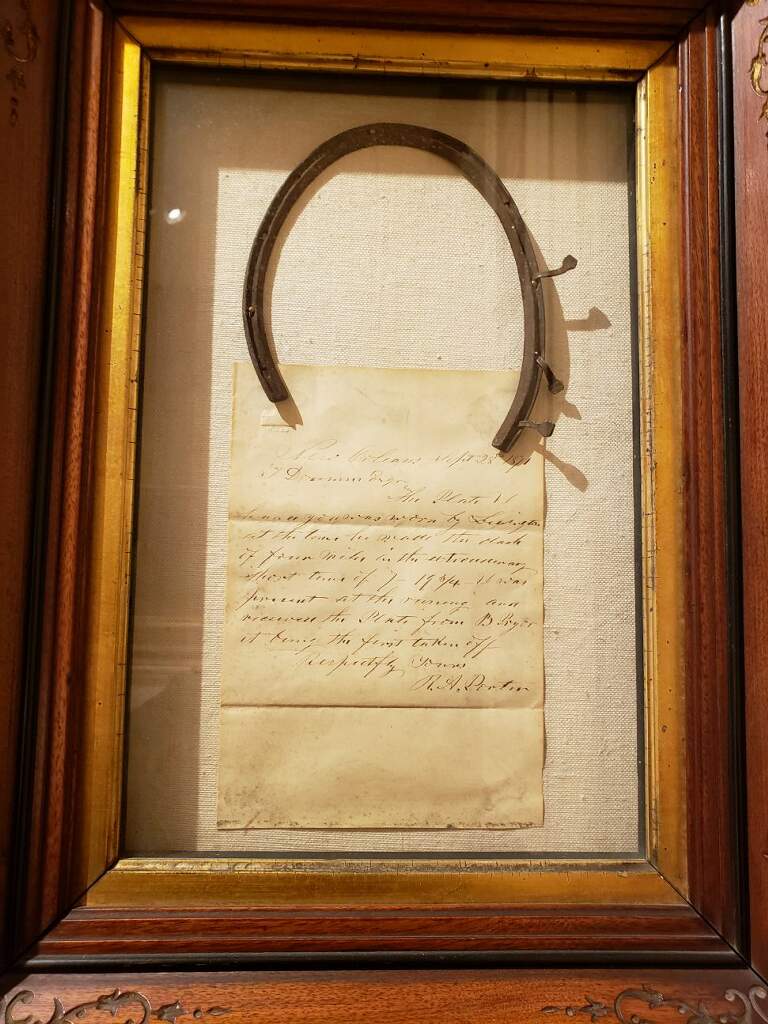 New Orleans Sept 28th 18
Esqr
The Plate I
worn by Lexington
at the time he made the dash
of four miles in the extraordinary
short time of 7 - 19 3/4 - I was
present at the running and
received the Plate from B Pryor
it being the first taken off
Respectfly Yours
R. A.